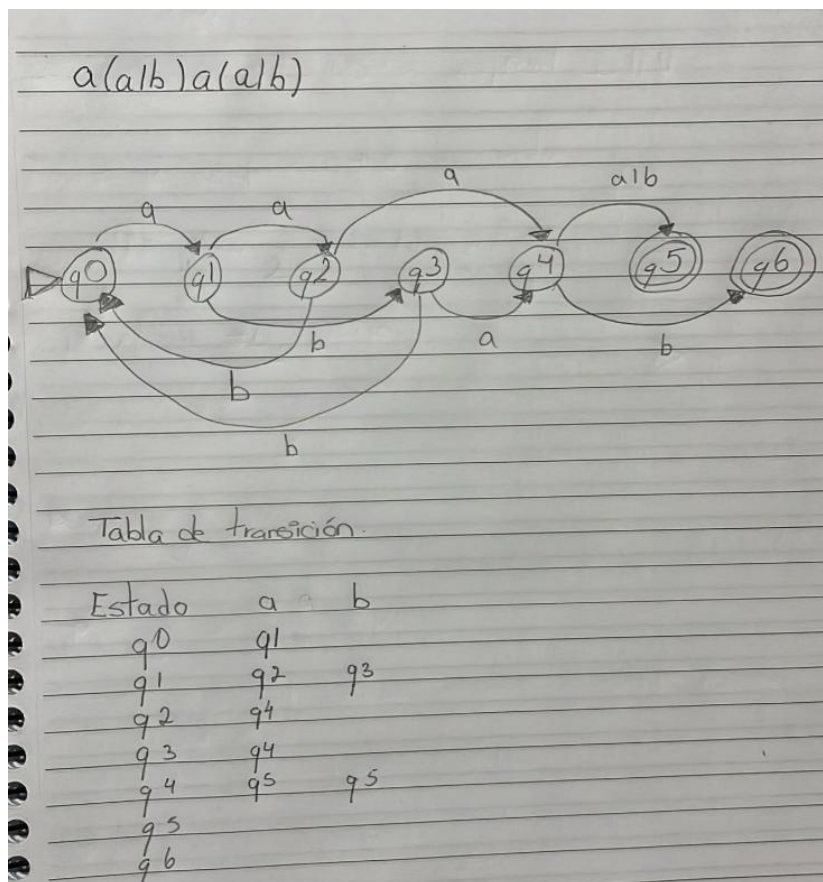 a(a|b)a(a|b)
a a a a|b
q0 q1 q2 q3 q4 q5 q6
b a b
b
b
Tabla de transición.
Estado a b
q0 q1
q1 q2 q3
q2 q4
q3 q4
q4 q5 q5
q5
q6